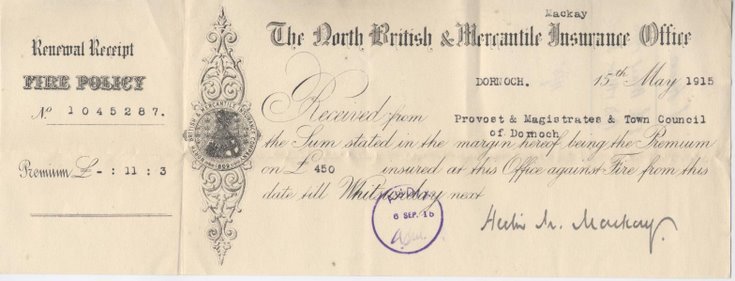 Renewal Receipt
FIRE POLICY
No 1045287.
Premium £ - : 11 : 3
Mackay
The North British & Mercantile Insurance Office
DORNOCH. 15th May 1915
Received from Provost & Magistrates & Town Council
of Dornoch
the Sum stated in the margin hereof being the Premium
on £ 450 insured at this Office against Fire from this
date till Whitsunday next
6 SEP. 15
Mackay.